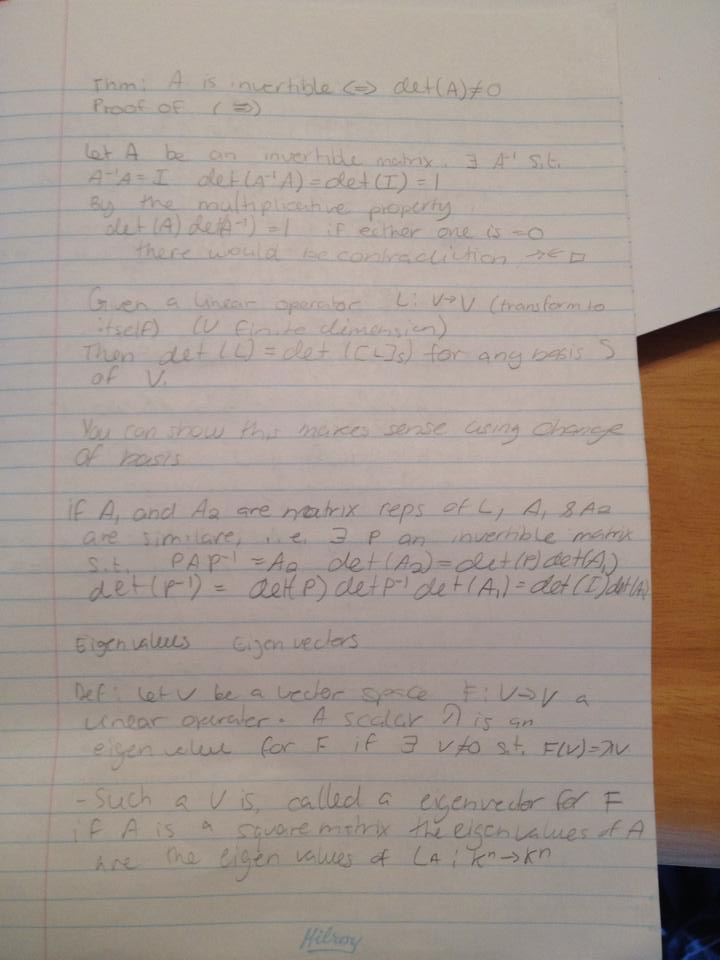 Thm: A is invertible <=> det(A)≠0
Proof of (=>)
Let A be an invertible matrix. ∃ A⁻¹ s.t.
A⁻¹A = I det(A⁻¹A) = det(I) = 1
By the multiplicative property
det(A) det(A⁻¹) = 1 if either one is =0
there would be contradiction →← □
Given a linear operator L: V→V (transform to
itself) (V finite dimension)
Then det(L) = det([L]s) for any basis S
of V.
You can show this makes sense using change
of basis
if A, and A2 are matrix reps of L, A, & A2
are similare, i.e. ∃ P an invertible matrix
s.t. PAP⁻¹ = A2 det(A2) = det(P) det(A,)
det(P⁻¹) = det(P) det P⁻¹ det(A,) = det(I) det(A,)
Eigenvalues Eigenvectors
Def: Let V be a vector space F: V→V a
linear operater. A scalar λ is an
eigen value for F if ∃ v≠0 s.t. F(v)=λv
- Such a v is, called a eigenvector for F
if A is a square matrix the eigenvalues of A
are the eigen values of LA: Kⁿ→Kⁿ
Hilroy